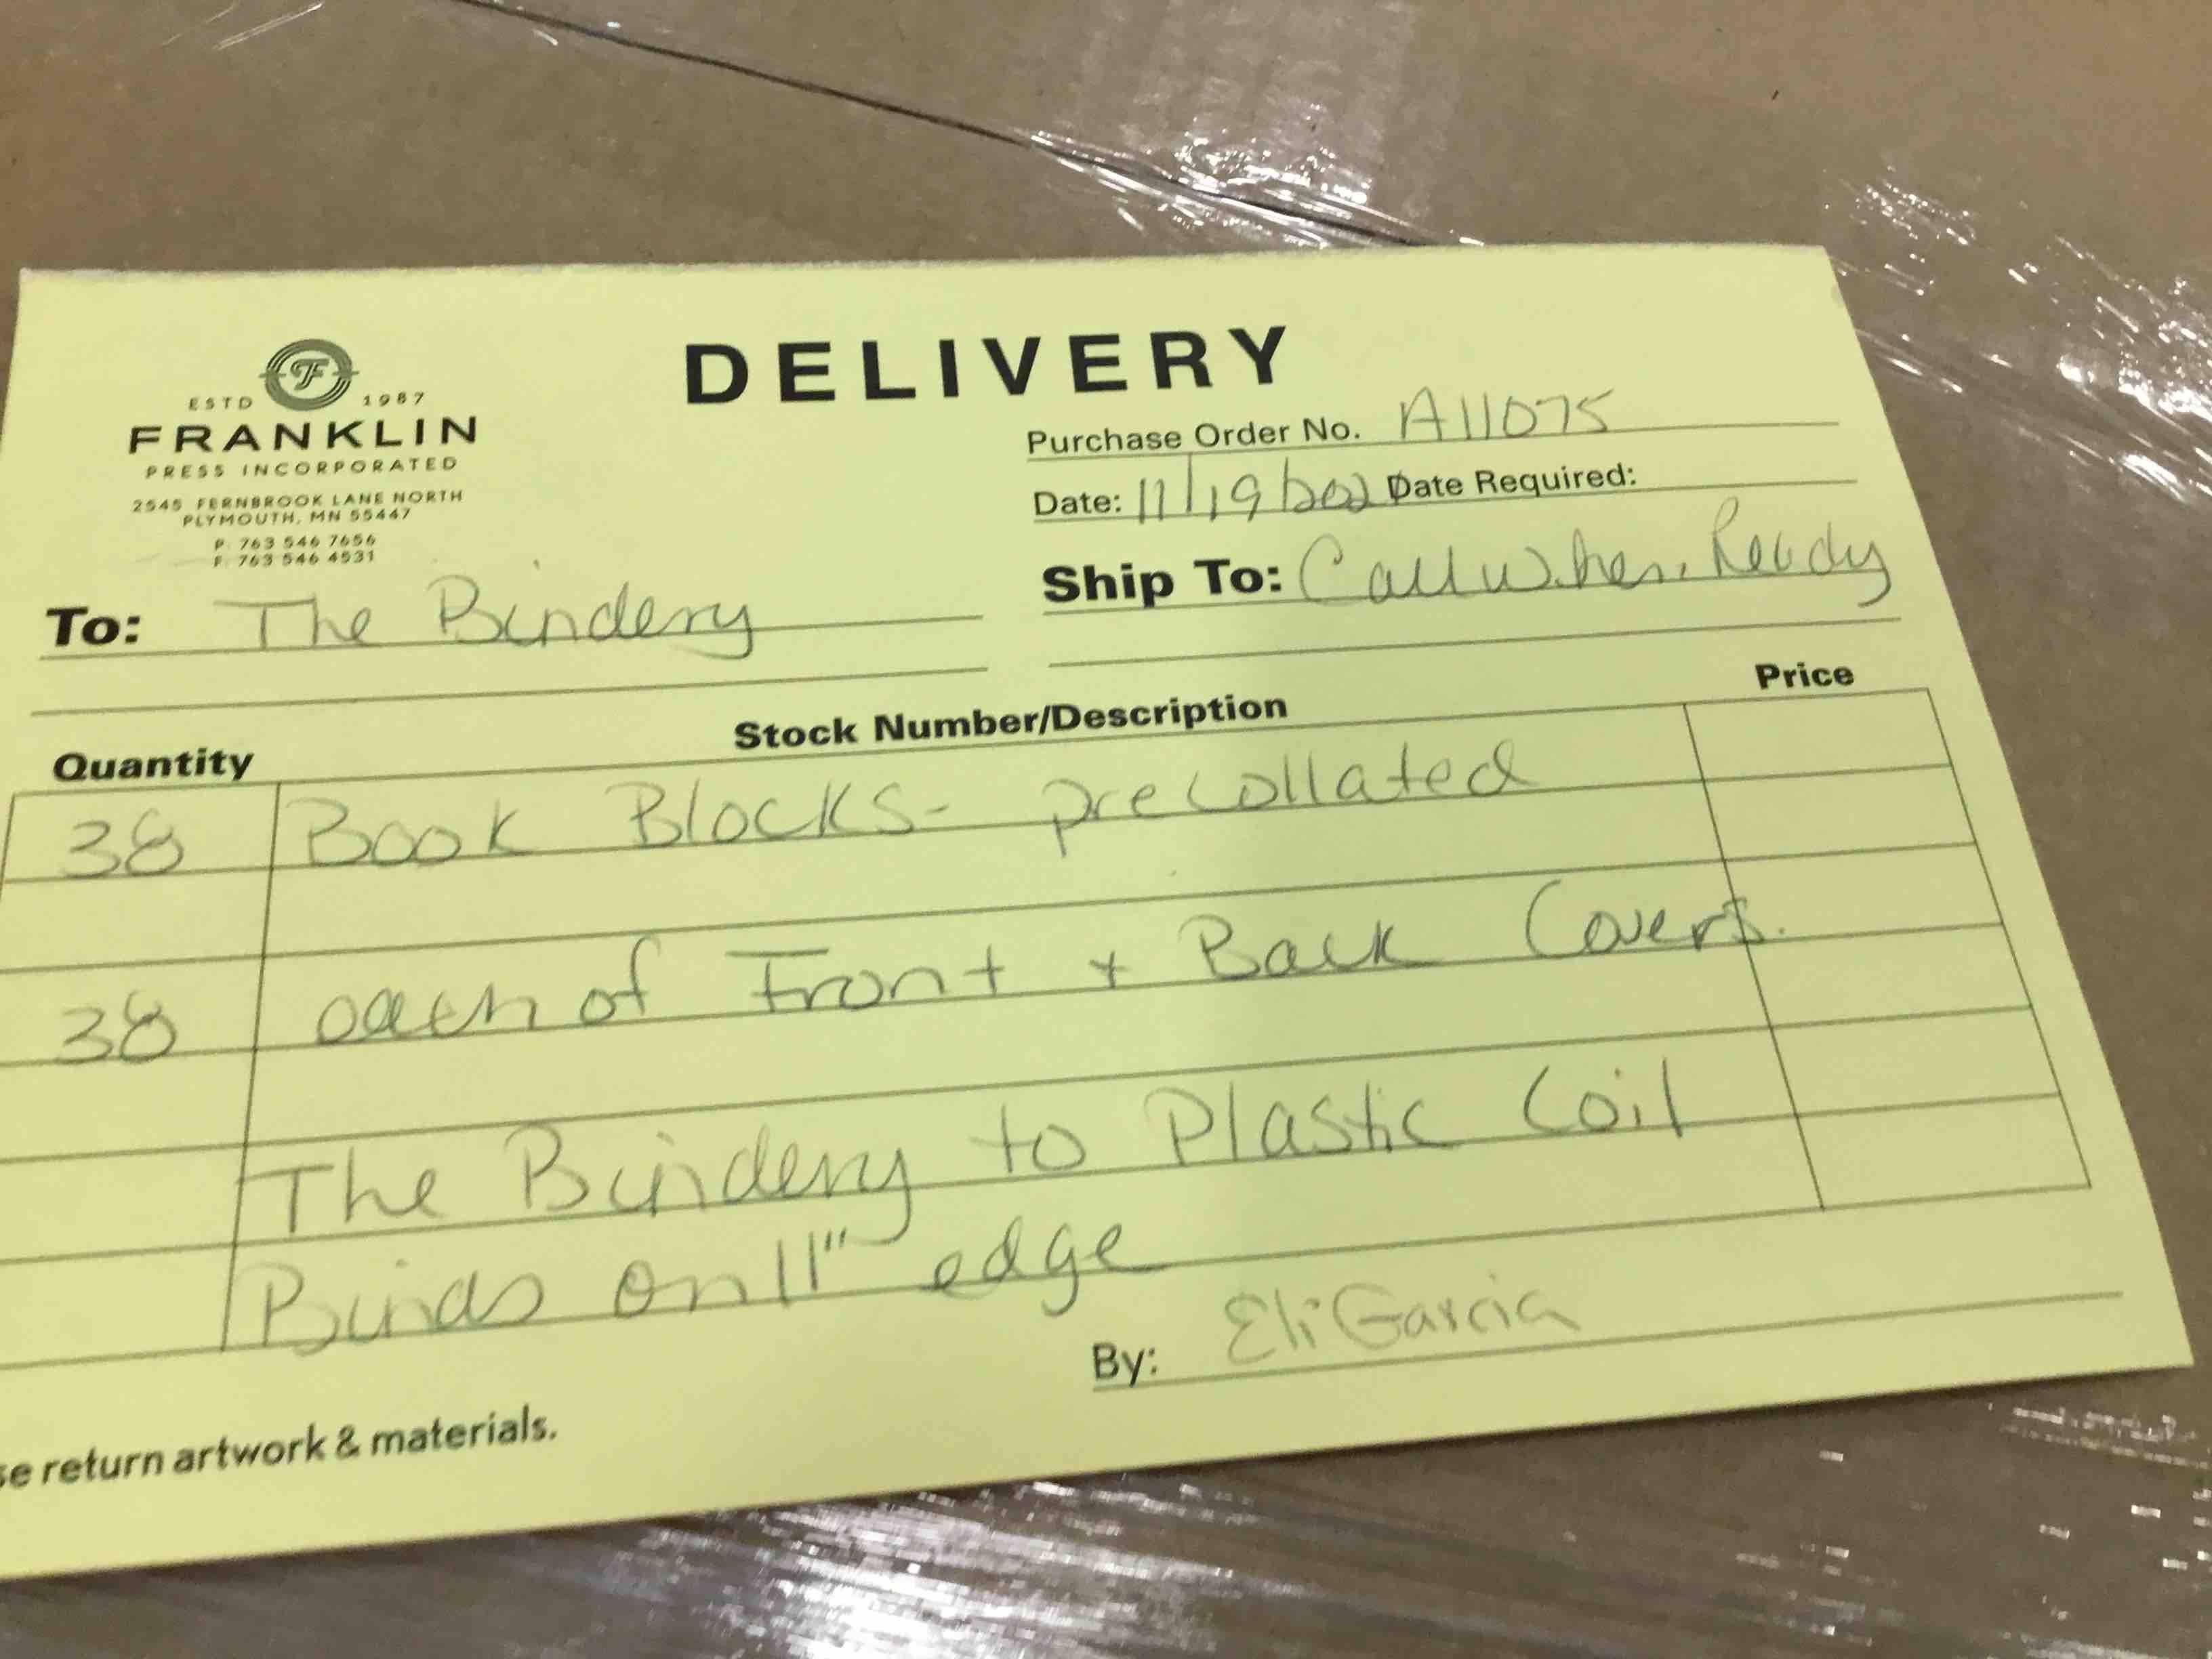 DELIVERY
F
ESTD 1987
FRANKLIN
PRESS INCORPORATED
2545 FERNBROOK LANE NORTH
PLYMOUTH, MN 55447
P 763 546 7656
F 763 546 4531
Purchase Order No. A11075
Date: 11/19/202 Date Required:
To: The Bindery
Ship To: Call when Ready
Quantity Stock Number/Description Price
38 Book Blocks- precollated
38 each of Front + Back Covers.
The Bindery to Plastic Coil
Binds on 11" edge
By: Eli Garcia
se return artwork & materials.